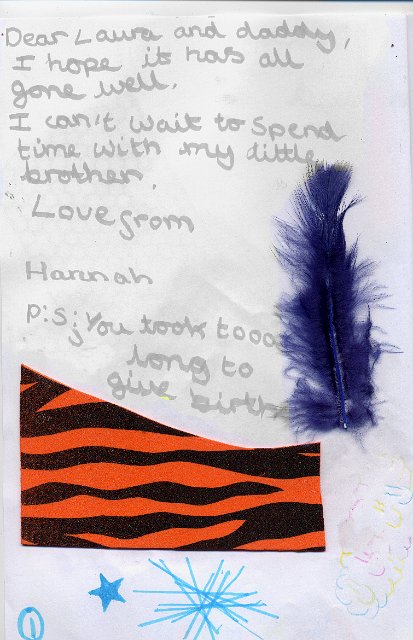 Dear Laura and daddy,
I hope it has all
gone well.
I can't wait to spend
time with my dittle
brother.
Love from
Hannah
P:S; You took tooo
long to
give birth